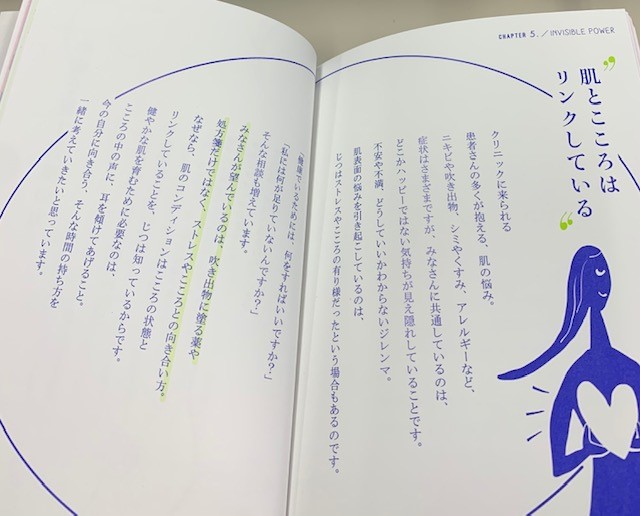 CHAPTER 5. / INVISIBLE POWER
肌とこころは
リンクしている
クリニックに来られる
患者さんの多くが抱える、肌の悩み。
ニキビや吹き出物、シミやくすみ、アレルギーなど、
症状はさまざまですが、みなさんに共通しているのは、
どこかハッピーではない気持ちが見え隠れしていることです。
不安や不満、どうしていいかわからないジレンマ。
肌表面の悩みを引き起こしているのは、
じつはストレスやこころの有り様だったという場合もあるのです。
「健康でいるためには、何をすればいいですか?」
「私には何が足りていないんですか?」
そんな相談も増えています。
みなさんが望んでいるのは、吹き出物に塗る薬や
処方箋だけではなく、ストレスやこころとの向き合い方。
なぜなら、肌のコンディションはこころの状態と
リンクしていることを、じつは知っているからです。
健やかな肌を育むために必要なのは、
こころの中の声に、耳を傾けてあげること。
今の自分に向き合う、そんな時間の持ち方を
一緒に考えていきたいと思っています。